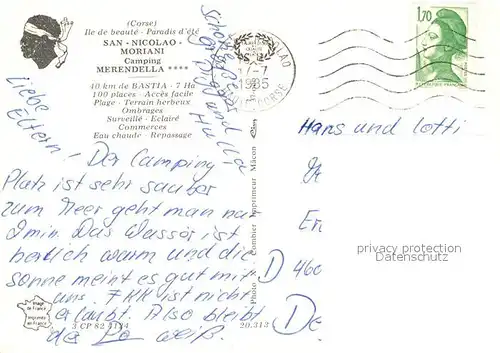 (Corse)
Ile de beauté - Paradis d'été
SAN - NICOLAO -
MORIANI
Camping
MERENDELLA ****
40 km de BASTIA - 7 Ha
100 places - Accès facile
Plage - Terrain herbeux
Ombrages
Surveillé - Eclairé
Commerces
Eau chaude - Repassage
Liebe
Eltern!
Der Camping
Platz ist sehr sauber
zum Meer geht man na
2 min. Das Wasser ist
herlich warm und die
Sonne meint es gut mit
uns. FKK ist nicht
erlaubt. Also bleibt
der Po weiß.
und
17-7
1985
CORSE
1,70
Hans und Lotti
D 460
De
privacy protection
Datenschutz
Image
de France
imprimée
en France
3 CP 82 4124
20.313
Photo
Combier Imprimeur Mâcon